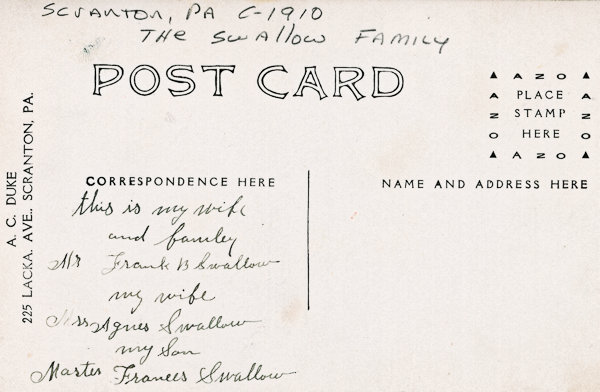 SCRANTON, PA C-1910
THE SWALLOW FAMILY
POST CARD
▲ A Z O ▲
A PLACE A
N STAMP N
O HERE O
▲ A Z O ▲
A. C. DUKE
225 LACKA. AVE., SCRANTON, PA.
CORRESPONDENCE HERE
NAME AND ADDRESS HERE
this is my wife
and famley
Mr Frank B Swallow
my wife
Miss Agnes Swallow
my Son
Master Frances Swallow